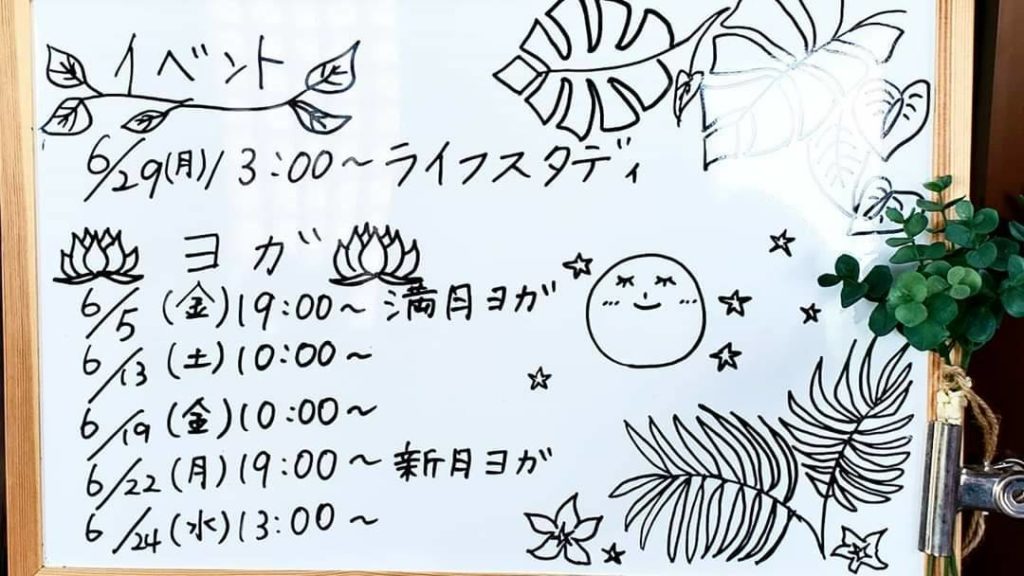 イベント
6/29(月)13:00～ライフスタディ
ヨガ
6/5(金)19:00～満月ヨガ
6/13(土)10:00～
6/19(金)10:00～
6/22(月)19:00～新月ヨガ
6/24(水)13:00～